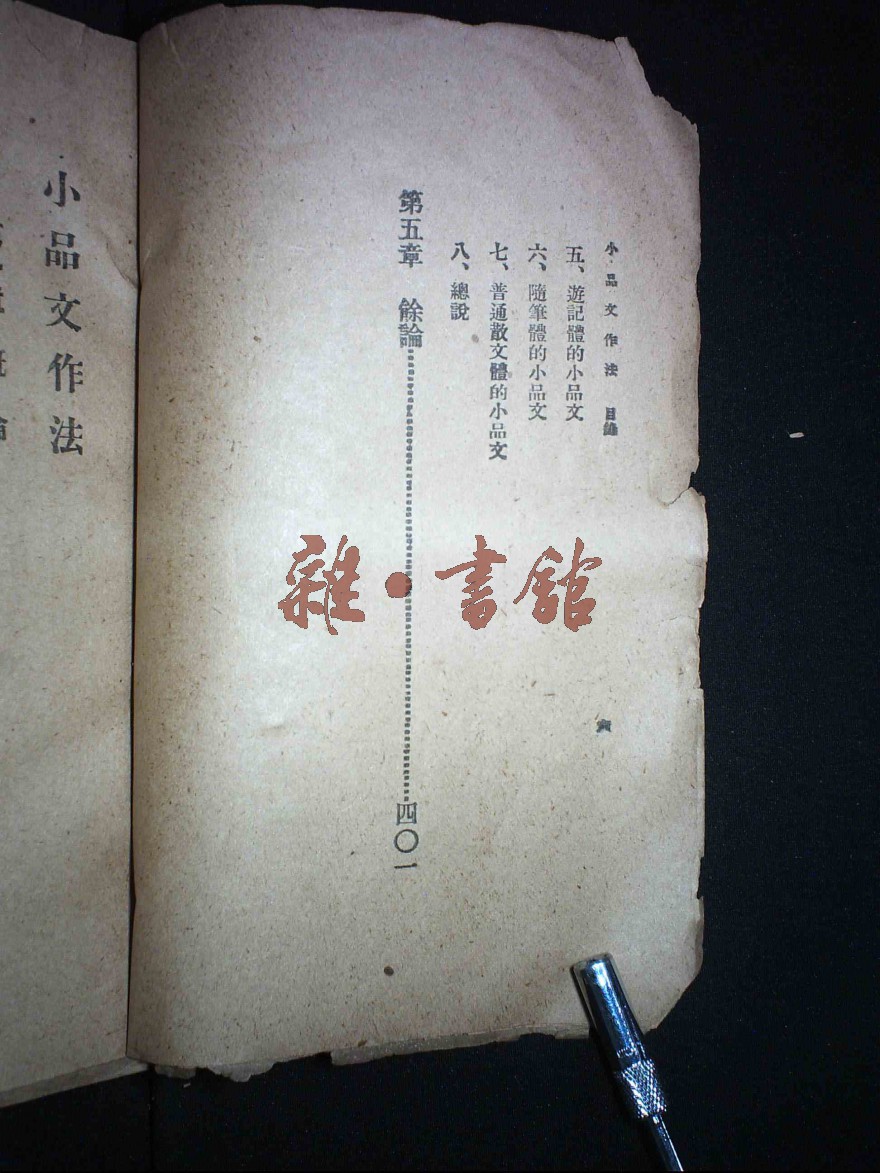 小品文作法 目錄
五、遊記體的小品文
六、隨筆體的小品文
七、普通散文體的小品文
八、總說
第五章 餘論……四〇一
六
小品文作法
雜·書館